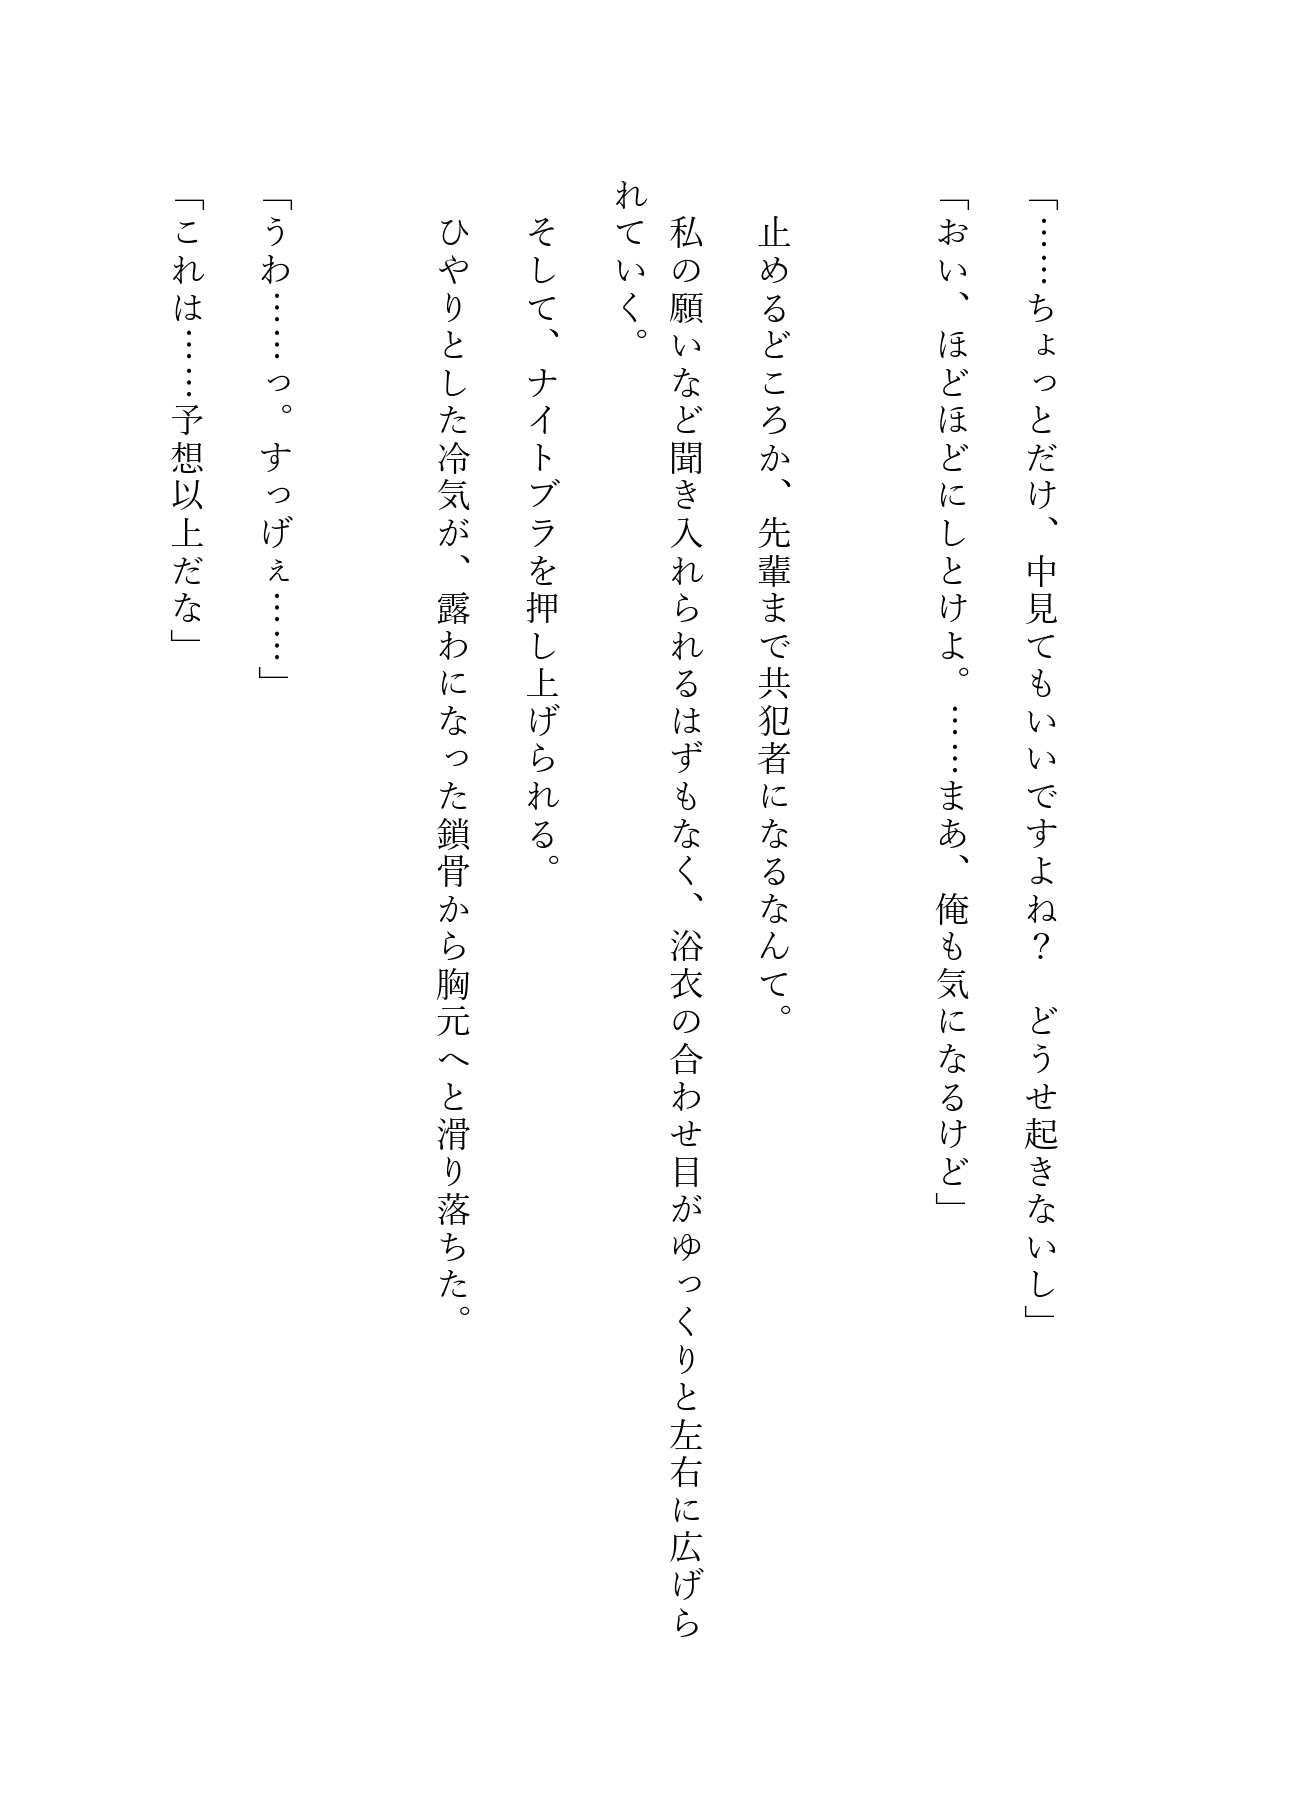 「……ちょっとだけ、中見てもいいですよね？　どうせ起きないし」
「おい、ほどほどにしとけよ。……まあ、俺も気になるけど」
　止めるどころか、先輩まで共犯者になるなんて。
　私の願いなど聞き入れられるはずもなく、浴衣の合わせ目がゆっくりと左右に広げら
れていく。
　そして、ナイトブラを押し上げられる。
　ひやりとした冷気が、露わになった鎖骨から胸元へと滑り落ちた。
「うわ……っ。すっげぇ……」
「これは……予想以上だな」